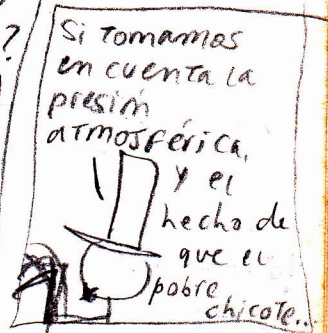 ?
Si Tomamos
en cuenta la
presión
atmosférica,
y el
hecho de
que el
pobre
chicote...